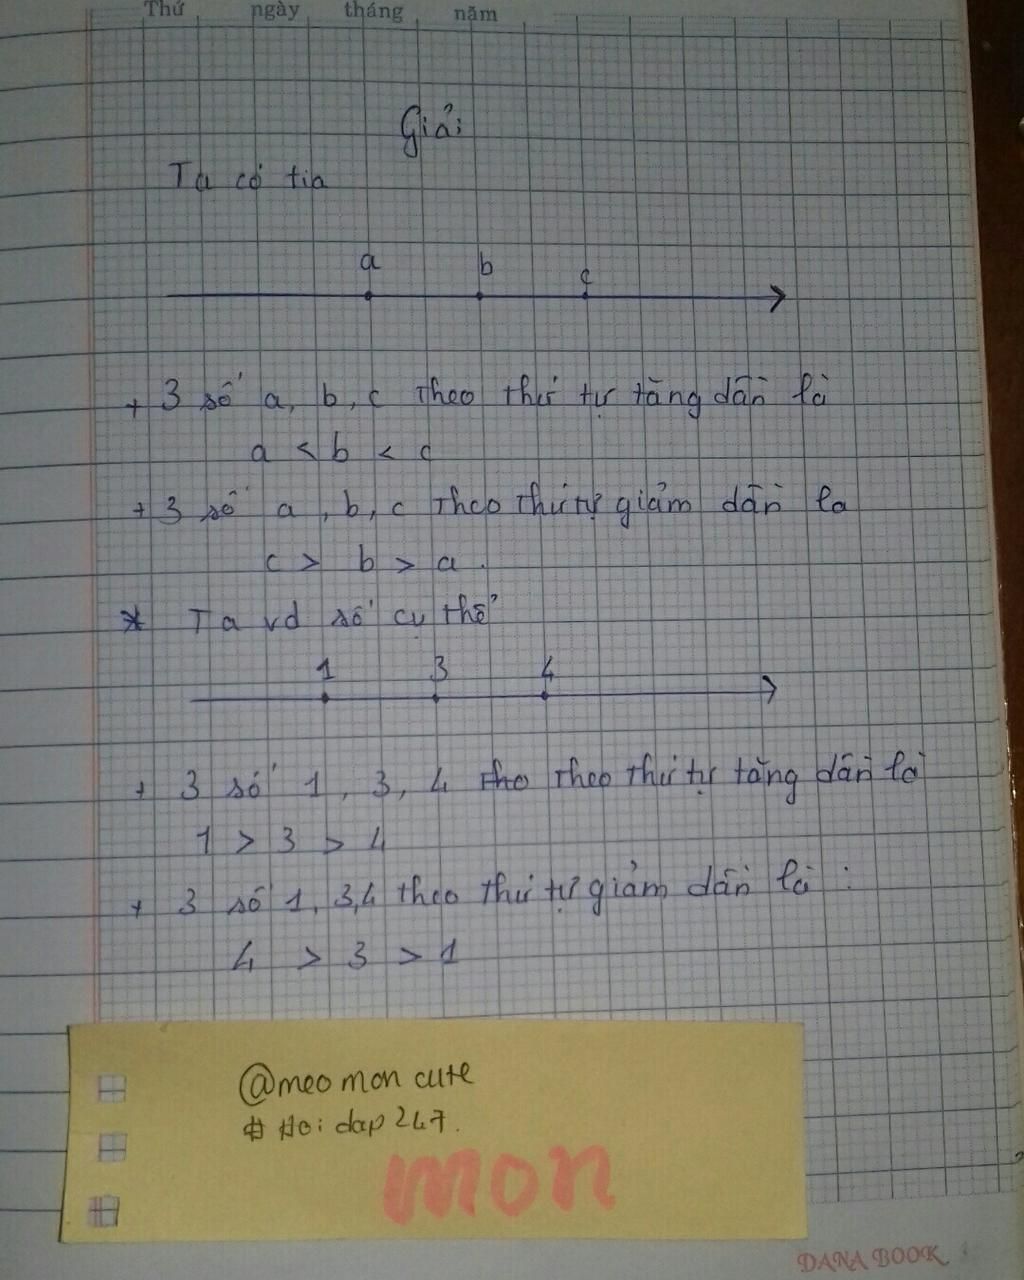 Thứ ngày tháng năm
Giải
Ta có tia
a b c
+ 3 số a, b, c theo thứ tự tăng dần là
a < b < c
+ 3 số a, b, c theo thứ tự giảm dần la
c > b > a.
* Ta vd số cụ thể
1 3 4
+ 3 số 1, 3, 4 theo thứ tự tăng dần là
1 > 3 > 4
+ 3 số 1, 3,4 theo thứ tự giảm dần là :
4 > 3 > 1
@meo mon cute
# Hoi dap 247.
mon
DANA BOOK